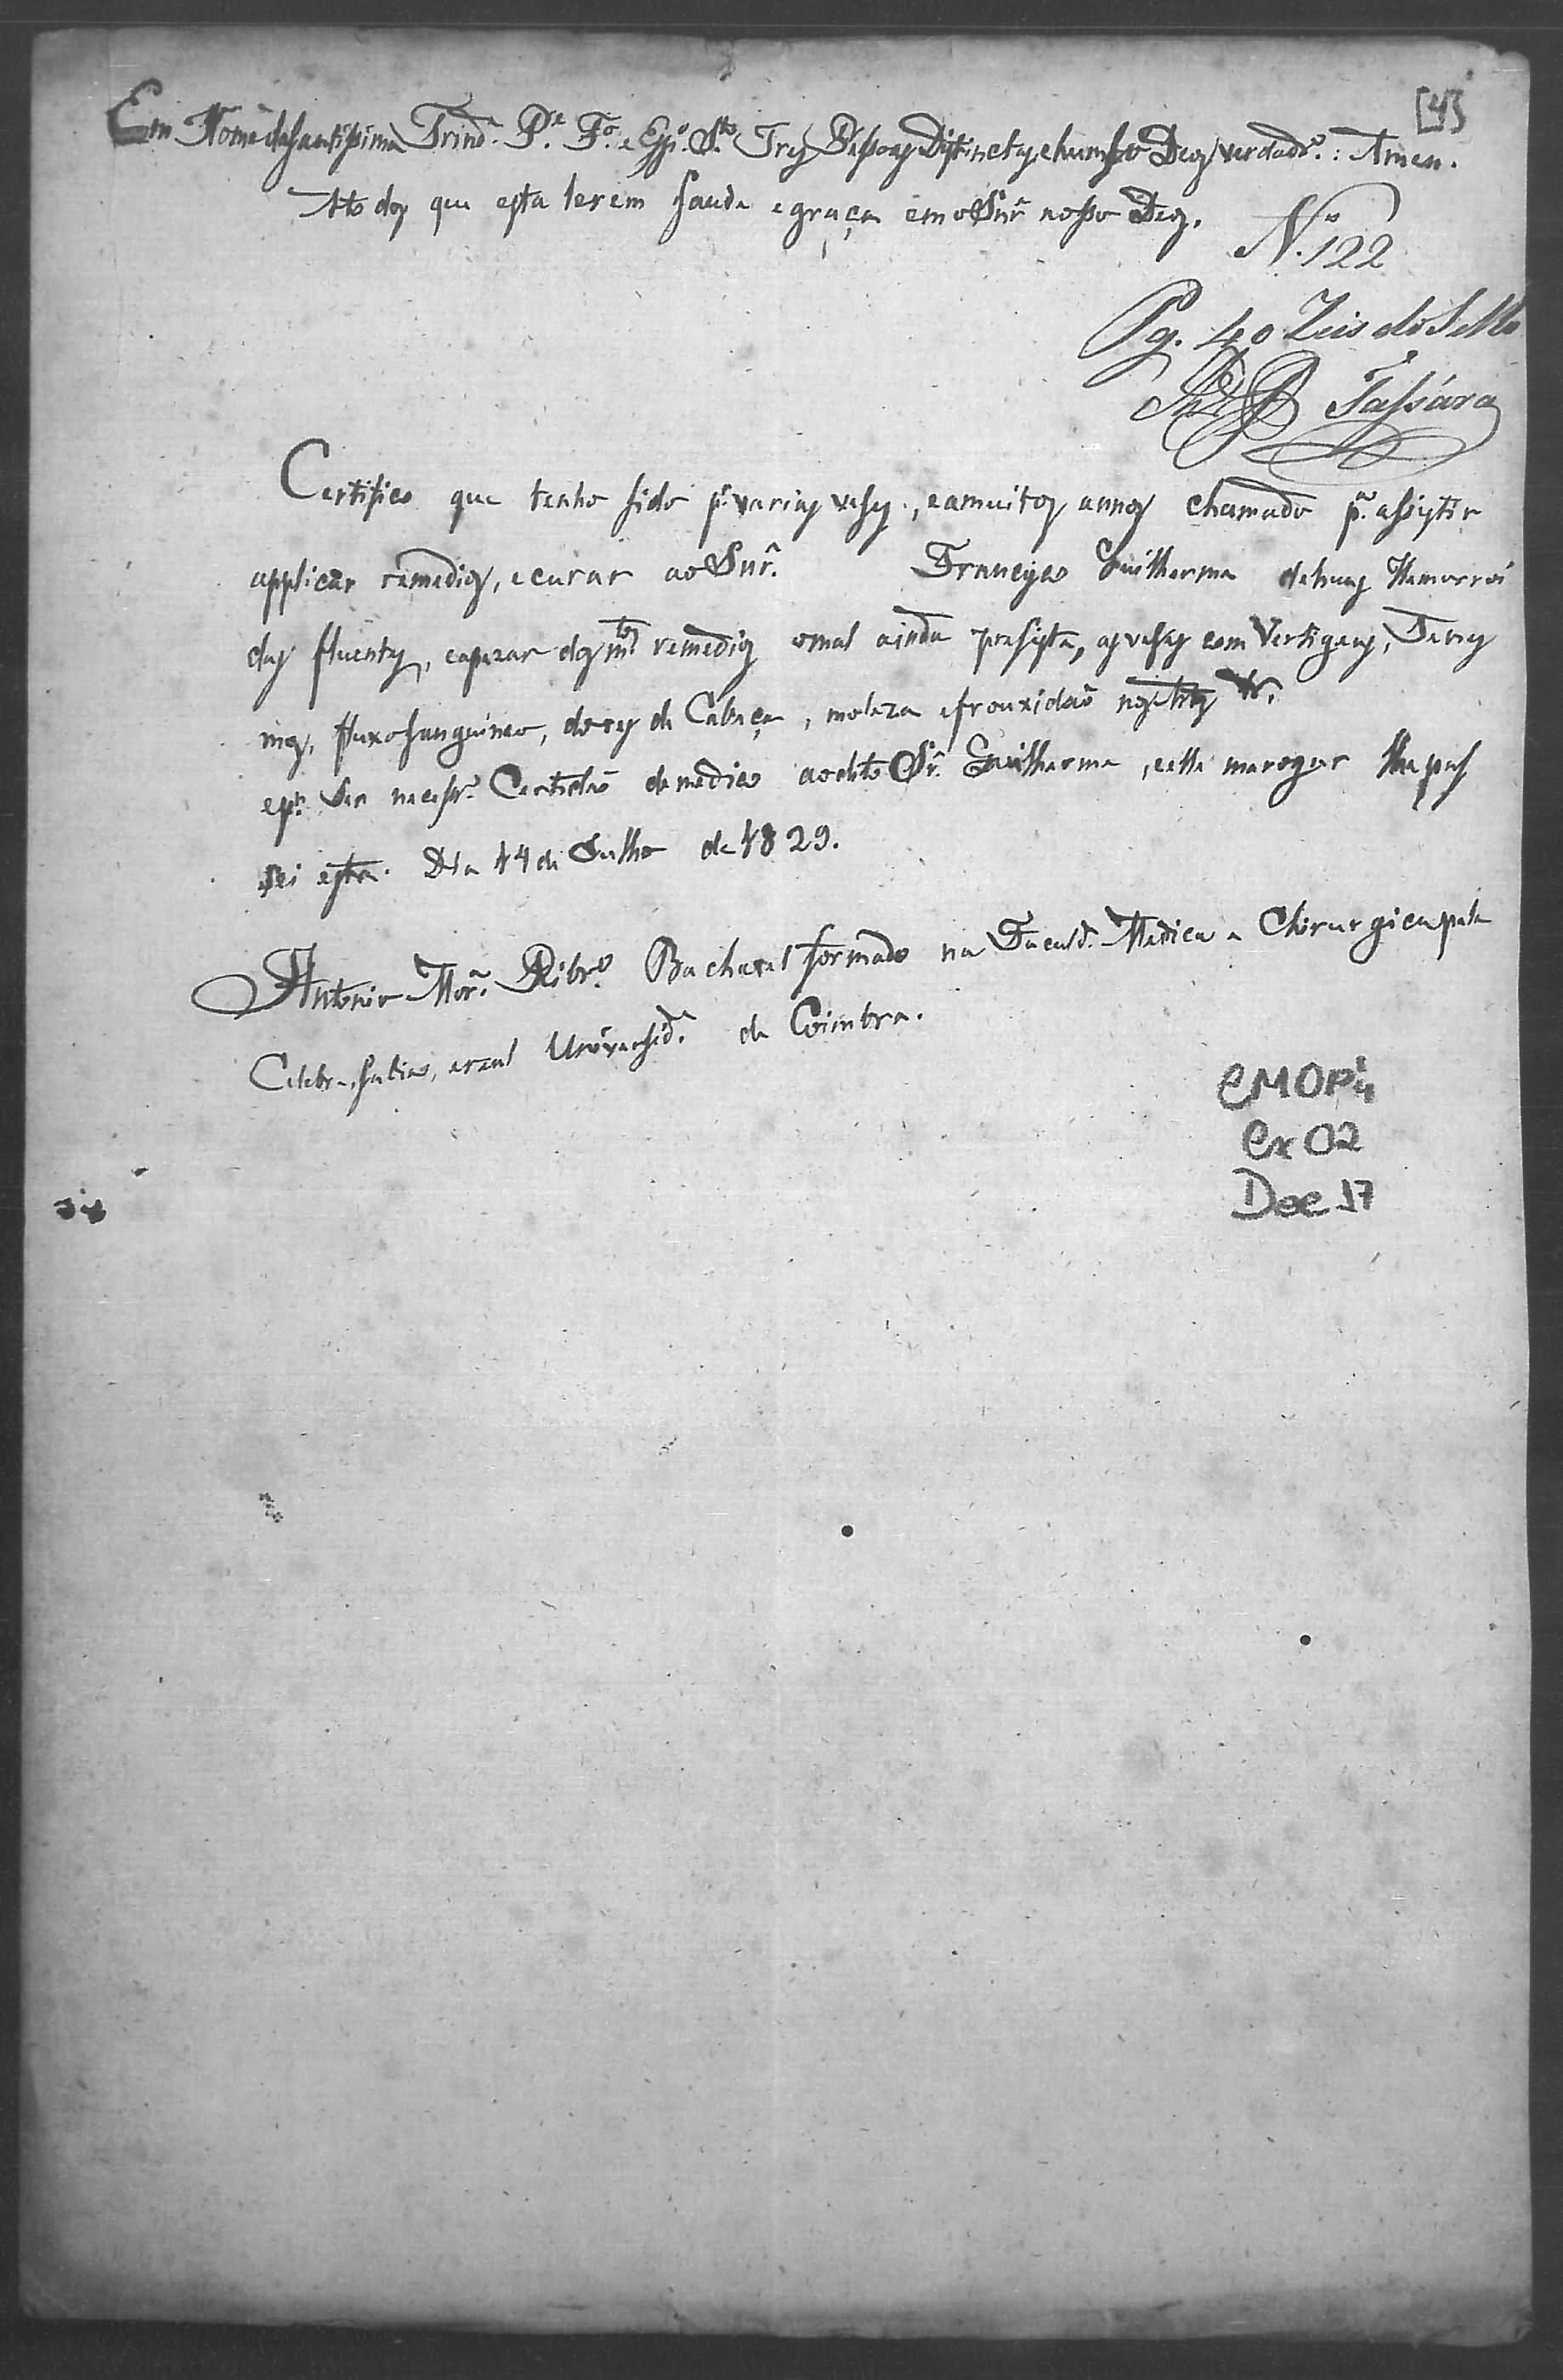 [4]
Em Nome da Santissima Trind.e P.e F.o e Espi.o S.to Tres Pessoas Distinctas e hum só Deos verdadr.o: Amen.
A todos que esta lerem saude e graça em o Snr̃ nosso Deos.
N.o 122
Pg. 40 Reis do Sello
Tassára
Certifico que tenho sido p.r varias vesis, e a muitos annos chamado p.a assistir
applicar remedios, e curar ao Snr̃. Francisco Guilherme de huas Hemorroi
das fluentes, e apezar dos m.tos remedios o mal ainda presiste, as veses com Vertigens, Tenes
mos, fluxo sanguineo, dores de Cabeça, moleza e frouxidaõ nos
e p.r Ser necessr.a Certidaõ de medico ao dito Sr̃. Guilherme, e elle me rogar lha pas
sei esta. Dia 14 de Julho de 1829.
Antonio Mor.a Ribr.o Bacharel formado na Faculd.e Medica e Chirurgica pela
Celebre, sabia, e real Universid.e de Coimbra.
CMOP
Cx 02
Doc 17